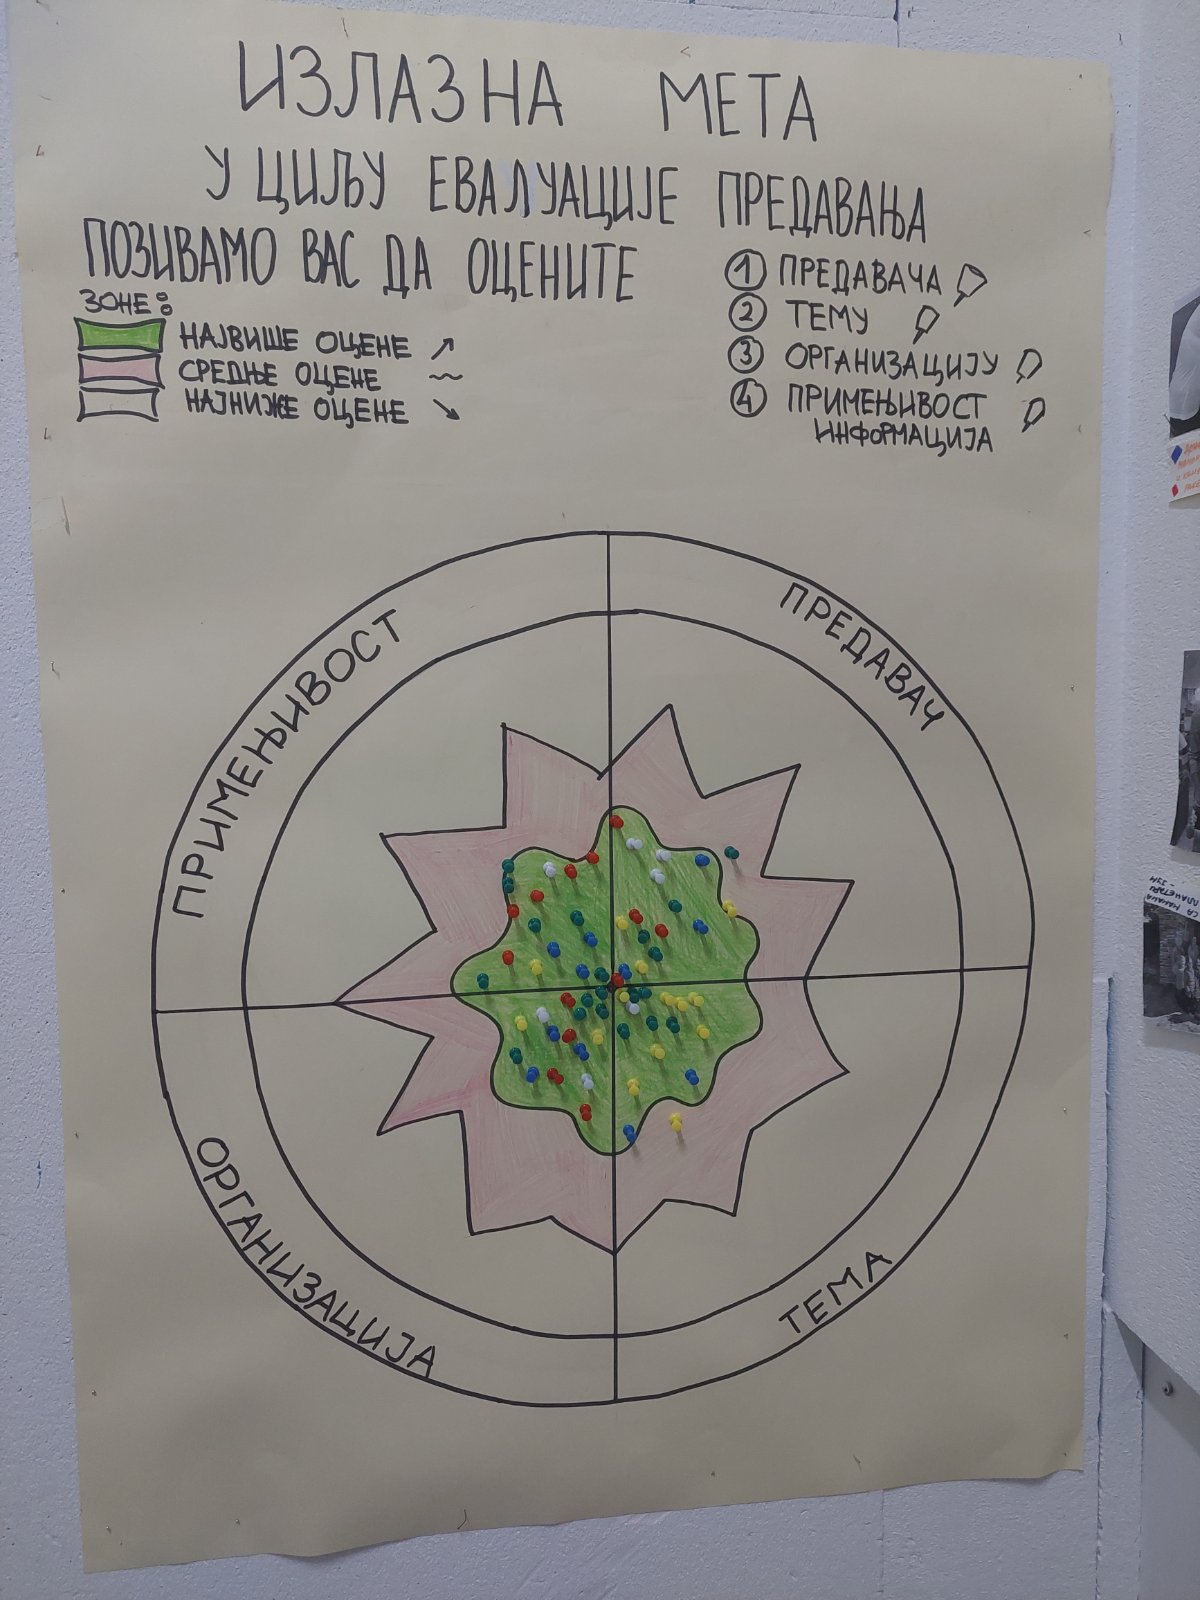 ИЗЛАЗНА МЕТА
У ЦИЉУ ЕВАЛУАЦИЈЕ ПРЕДАВАЊА
ПОЗИВАМО ВАС ДА ОЦЕНИТЕ
ЗОНЕ:
НАЈВИШЕ ОЦЕНЕ ↗
СРЕДЊЕ ОЦЕНЕ ~
НАЈНИЖЕ ОЦЕНЕ ↘
1 ПРЕДАВАЧА
2 ТЕМУ
3 ОРГАНИЗАЦИЈУ
4 ПРИМЕЊИВОСТ
ИНФОРМАЦИЈА
ПРИМЕЊИВОСТ
ПРЕДАВАЧ
ОРГАНИЗАЦИЈА
ТЕМА